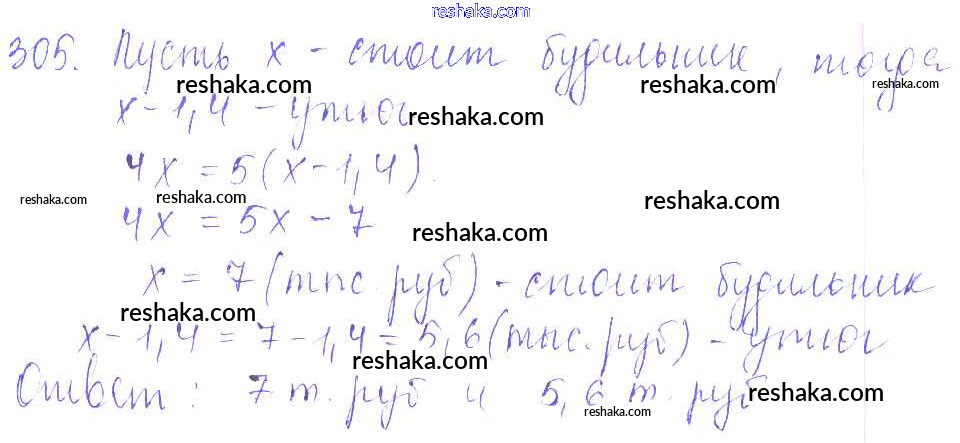 reshaka.com
305. Пусть х - стоит будильник, тогда
reshaka.com reshaka.com
х - 1,4 - утюг
reshaka.com reshaka.com
4х = 5(х - 1,4).
reshaka.com reshaka.com reshaka.com
4х = 5х - 7
reshaka.com
х = 7 (тыс. руб) - стоит будильник
reshaka.com reshaka.com
х - 1,4 = 7 - 1,4 = 5,6 (тыс. руб) - утюг
reshaka.com
Ответ: 7 т. руб и 5,6 т. руб
reshaka.com reshaka.com